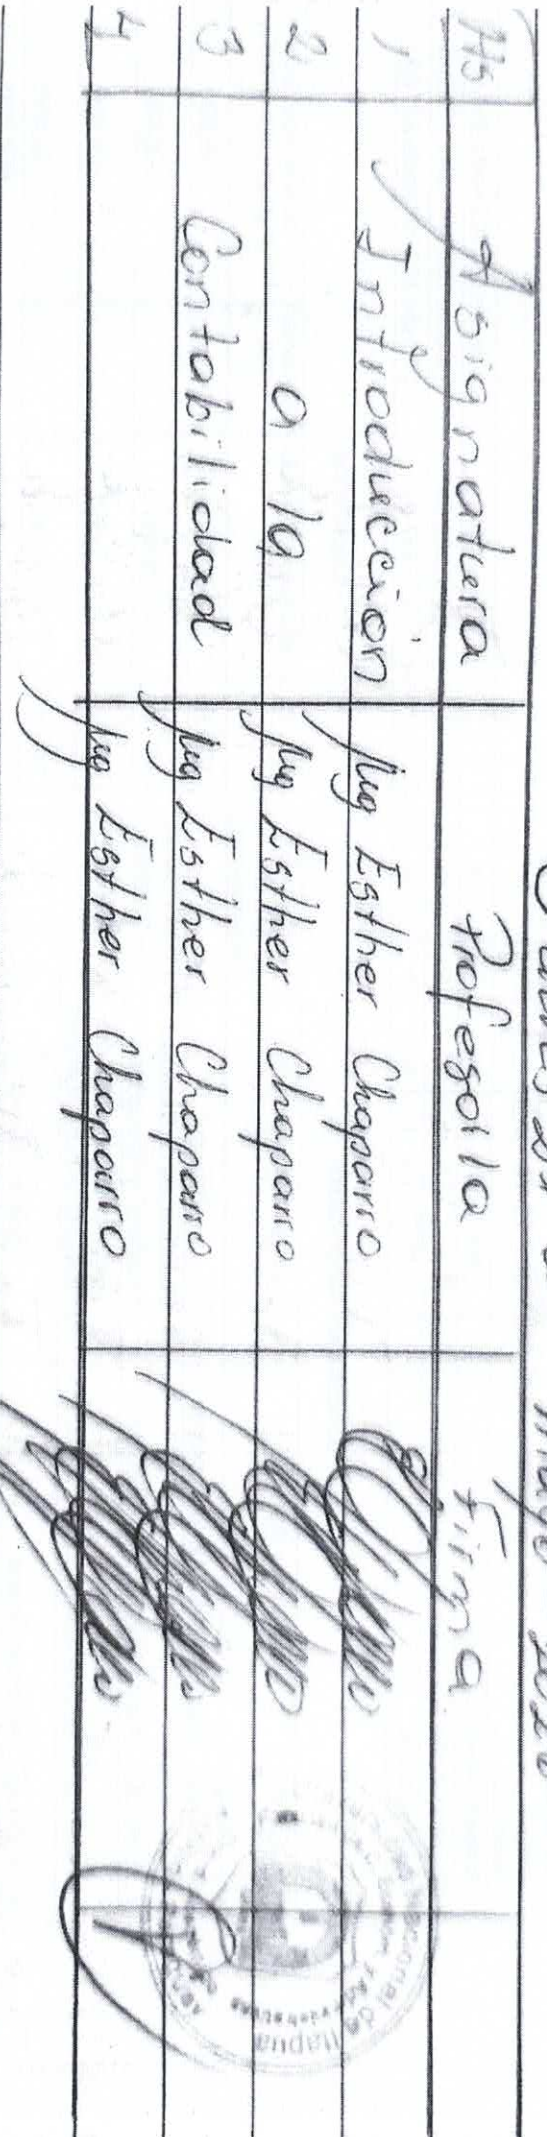 mayo
Hs Asignatura Profesor/a Firma
1 Introducción Mg Esther Chaparro
2 a la Mg Esther Chaparro
3 Contabilidad Mg Esther Chaparro
4 Mg Esther Chaparro
Nacional de Itapua